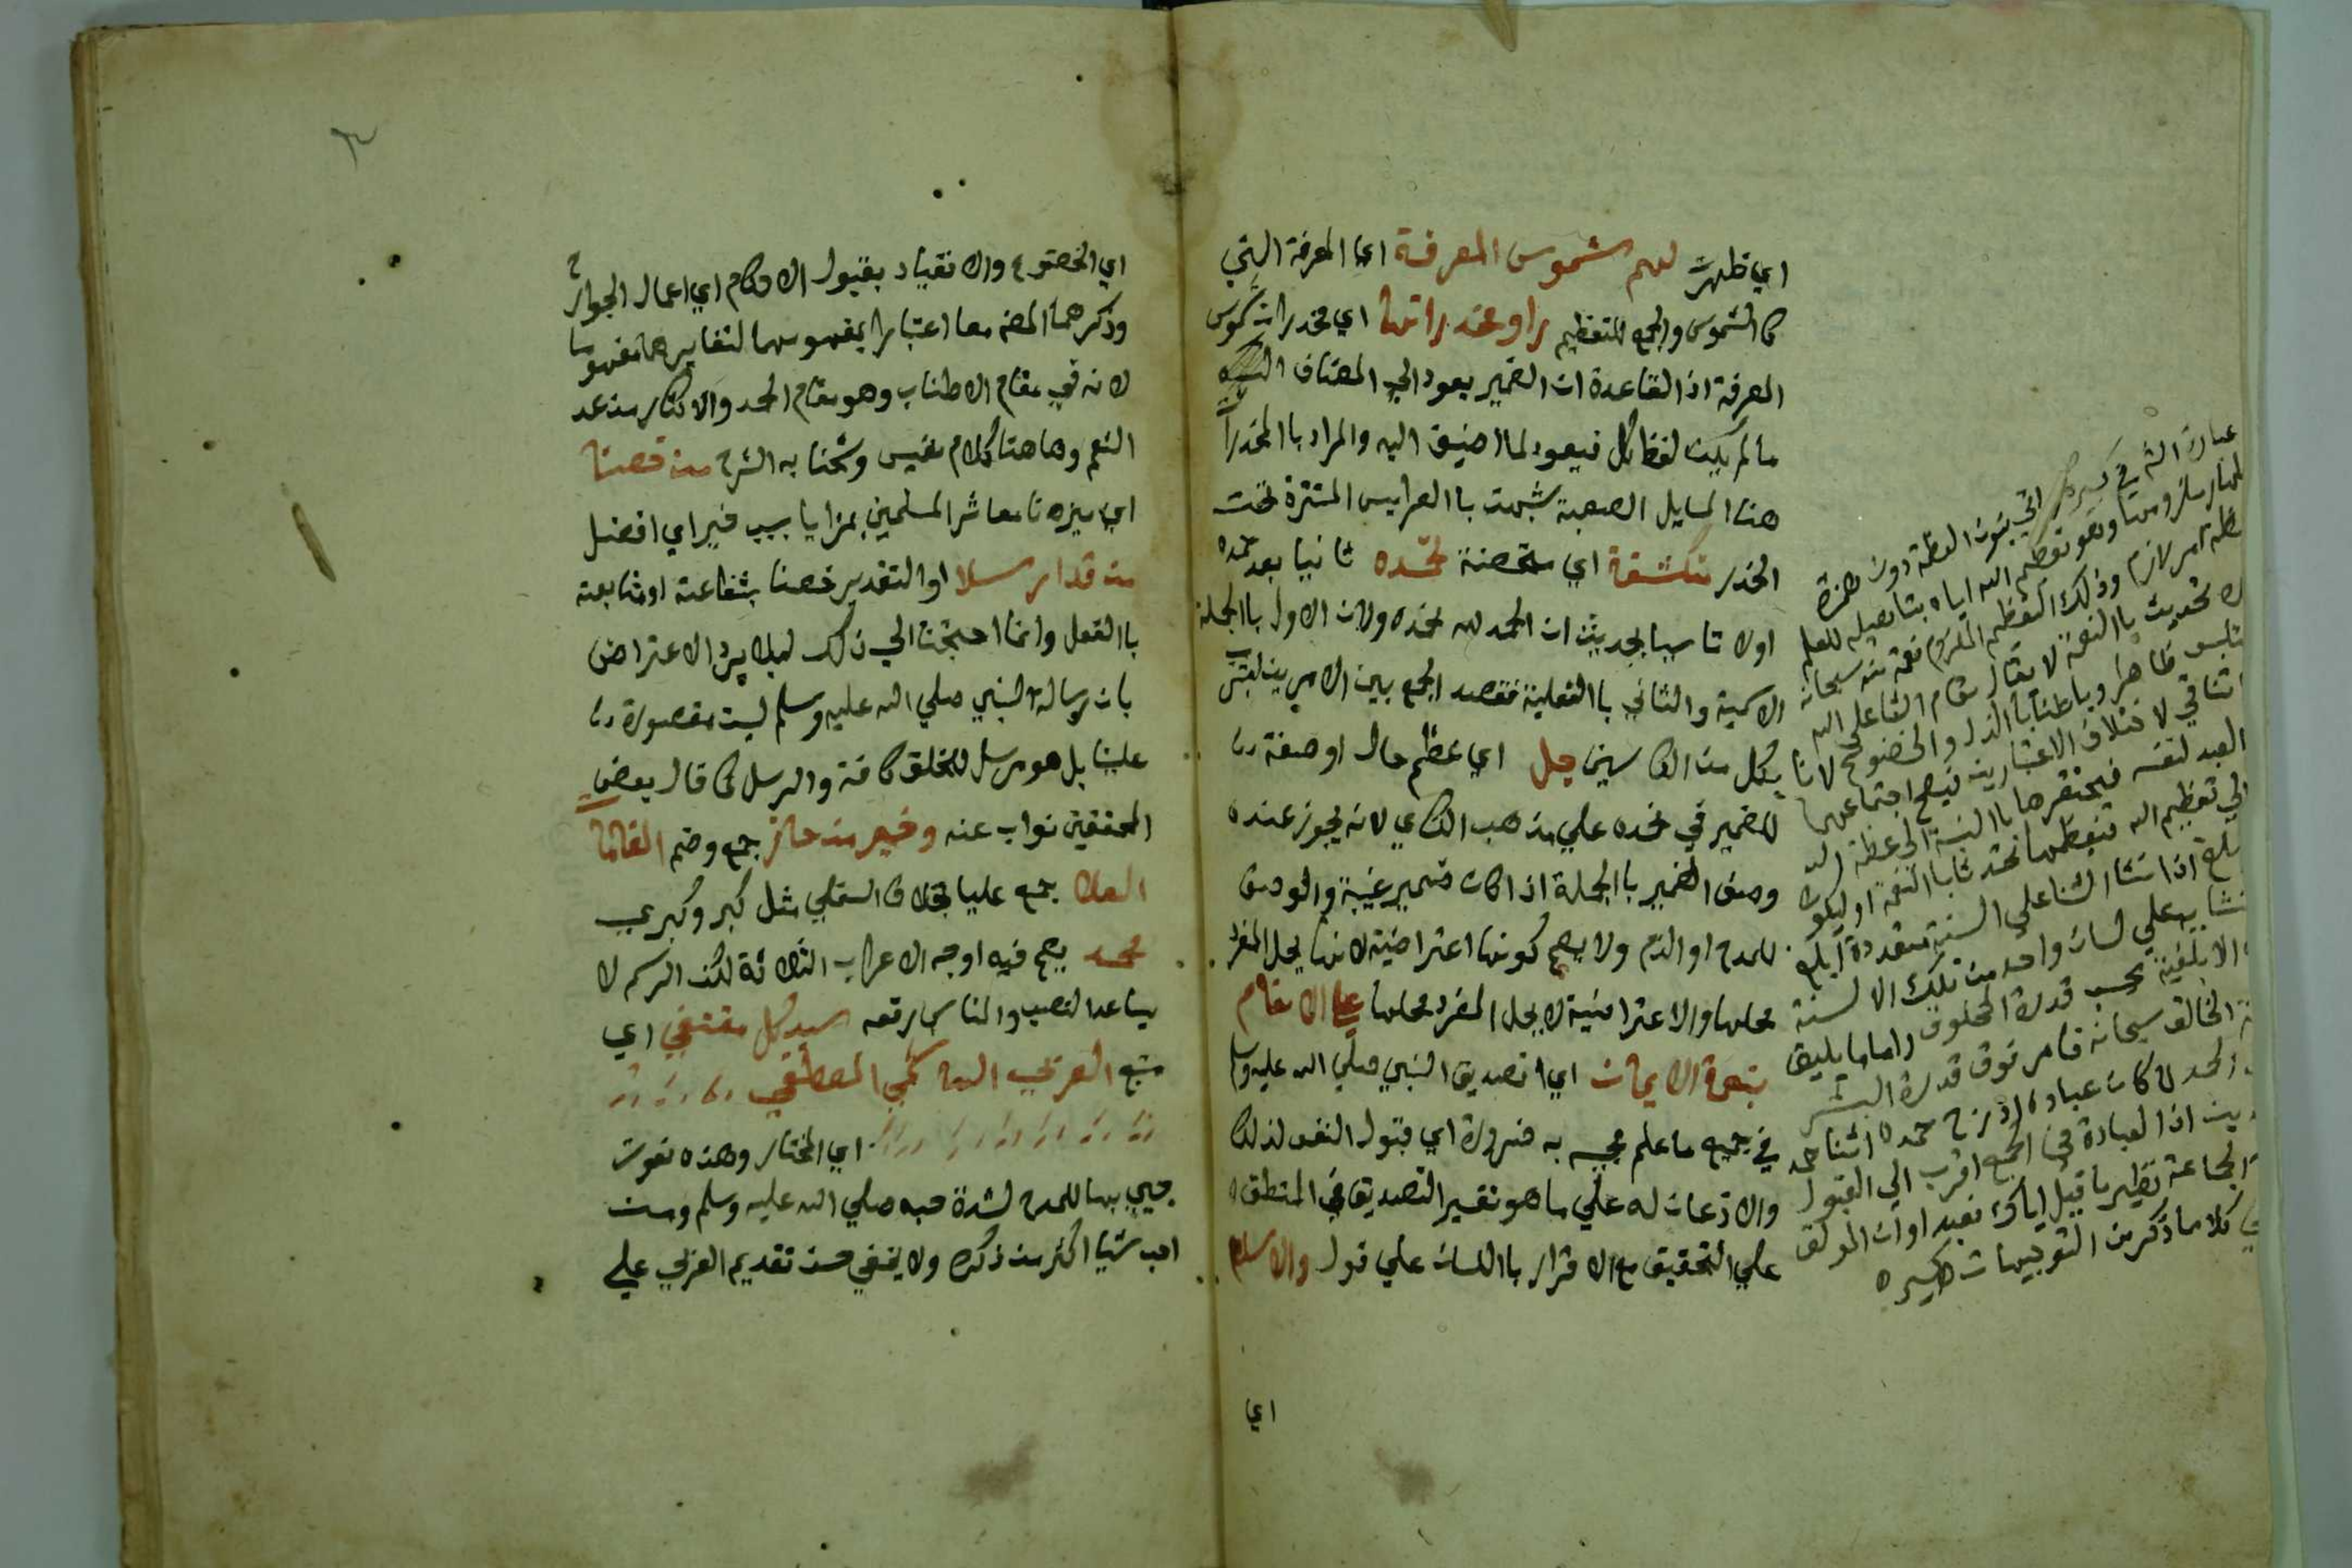 اي ظهرت لهم شموس المعرفة اي المعرفة التي
كالشموس والجمع للتعظيم راوا مخدراتها اي مخدرات شموس
المعرفة اذ القاعدة ان الضمير يعود الي المضاف اليه
مالم يكن لفظ كل فيعود لما اضيف اليه والمراد باالمخدرات
هنا المسايل الصعبة شبهت باالعرايس المستترة تحت
الخدر منكشفة اي متضحة نحمده ثانيا بعد حمده
اولا تاسيا بحديث ان الحمد لله نحمده ولان الاول باالجملة
الاسمية والثاني باالفعلية فقصد الجمع بين الامرين
بكل من الكاسين جل اي عظم حال او صفة
للضمير في نحمده علي مذهب الكساي لانه يجوز عنده
وصف الضمير باالجملة اذا كان ضمير غيبة والوصف
للمدح او الذم ولا يصح كونها اعتراضية لانها يحل المفرد
محلها والاعتراضية لا يحل المفرد محلها علي الانعام
بنعمة الايمان اي تصديق النبي صلي الله عليه وسلم
في جميع ما علم مجيه به ضرورة اي قبول النفس لذلك
والاذعان له علي ما هو تفسير التصديق في المنطق
علي التحقيق مع الاقرار باللسان علي قول والاسلام
اي
عبارة الش في كبيره اتي بنون العظمة دون همزة
لاظهار ملزومها وهو تعظيم الله اياه بتاهيله للعلم
امر لازم وذلك التعظيم الملزوم نعمة منه سبحانه
تحديث باالنعمة لا يقال مقام الثنا علي الله
ظاهرا وباطنا باالذل والخضوع لانا
تنافي لاختلاف الاعتبارين فيصح اجتماعهما
العبد لنفسه فيحتقرها باالنسبة الي عظمة الله
الي تعظيم الله فيعظمها تحدثا باالنعمة او ليكون
ابلغ اذا نشا الثنا علي السنة متعددة ابلغ
علي لسان واحد من تلك الالسنة
الابلغية بحسب قدرة المخلوق واما ما يليق
الخالق سبحانه فامر فوق قدرة البشر
الحمد لما كان عبادة ادرج حمده اثنا حمد
اذ العبادة في الجمع اقرب الي القبول
الجماعة نظير ما قيل اياك نعبد او ان المولف
كلا ما ذكر من التوجيهات
اي الخضوع والانقياد بقبول الاحكام اي اعمال الجوارح
وذكرهما المصنف معا اعتبارا بمفهومهما لتغايرهما مفهوما
لانه في مقام الاطناب وهو مقام الحمد والاكثار من عد
النعم وهاهنا كلام نفيس وشحنا به الشرح من خصنا
اي ميزنا معاشر المسلمين بمزايا بسبب خير اي افضل
من قد ارسلا او التقدير خصنا بشفاعة او متابعة
باالفعل وانما احتجنا الي ذلك ليلا يرد الاعتراض
بان رسالة النبي صلي الله عليه وسلم ليست مقصورة
علينا بل هو مرسل للخلق كافة والرسل كما قال بعض
المحققين نواب عنه وخير من حاز جمع وضم المقامات
العلا جمع عليا بخلاف السفلي مثل كبر وكبري
محمد يصح فيه اوجه الاعراب الثلاثة لكن الرسم لا
يساعد النصب والمناسب رفعه سيد كل مقتفي اي
متبع العربي الهاشمي المصطفي
اي المختار وهذه نعوت
جيي بها للمدح لشدة حبه صلي الله عليه وسلم ومن
احب شيا اكثر من ذكره ولا يخفي حسن تقديم العربي علي